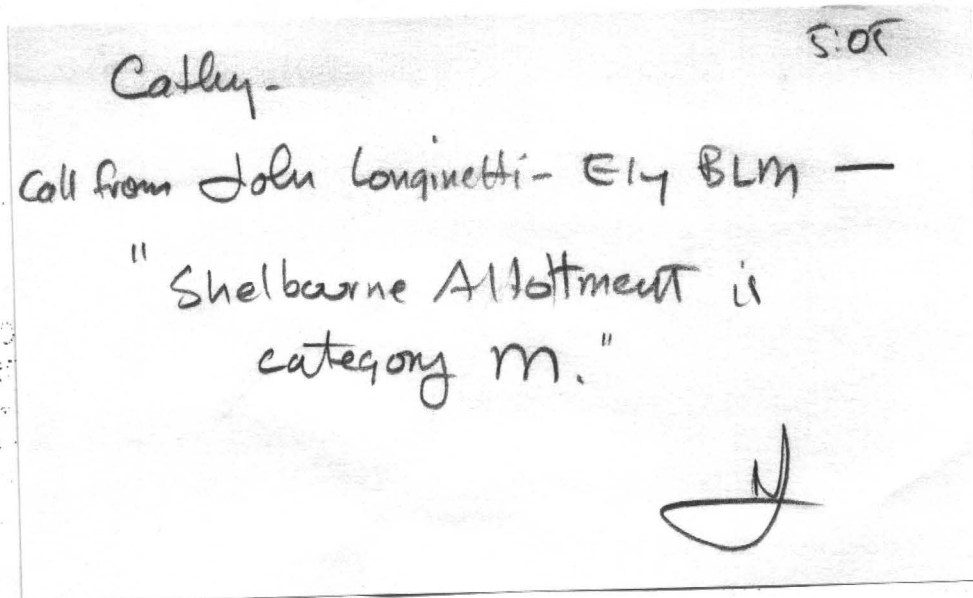 5:05
Cathy-
Call from John Longinetti - Ely BLM —
"Shelbourne Allottment is
category M."